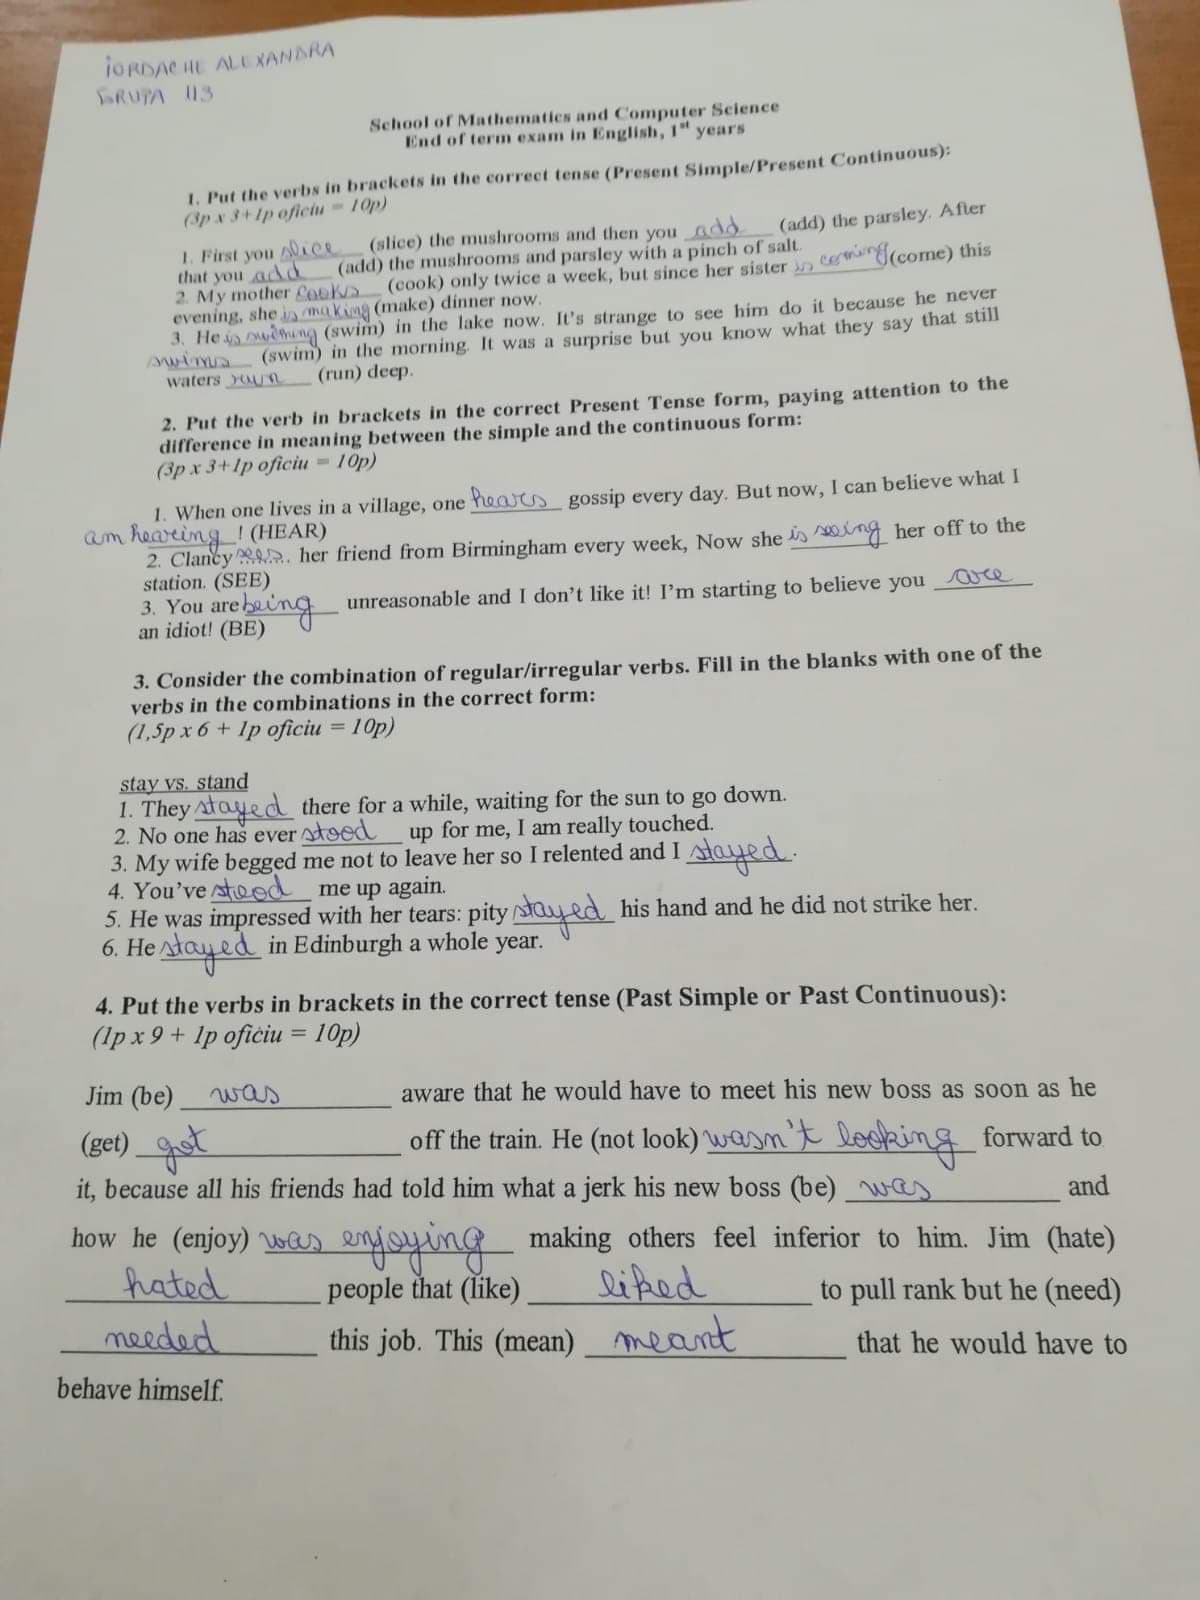 IORDACHE ALEXANDRA
GRUPA 113
School of Mathematics and Computer Science
End of term exam in English, 1st years
1. Put the verbs in brackets in the correct tense (Present Simple/Present Continuous):
(3p x 3+1p oficiu = 10p)
1. First you slice (slice) the mushrooms and then you add (add) the parsley. After
that you add (add) the mushrooms and parsley with a pinch of salt.
2. My mother cooks (cook) only twice a week, but since her sister is coming (come) this
evening, she is making (make) dinner now.
3. He is swimming (swim) in the lake now. It's strange to see him do it because he never
swims (swim) in the morning. It was a surprise but you know what they say that still
waters run (run) deep.
2. Put the verb in brackets in the correct Present Tense form, paying attention to the
difference in meaning between the simple and the continuous form:
(3p x 3+1p oficiu = 10p)
1. When one lives in a village, one hears gossip every day. But now, I can believe what I
am hearing ! (HEAR)
2. Clancy sees. her friend from Birmingham every week, Now she is seeing her off to the
station. (SEE)
3. You are being unreasonable and I don't like it! I'm starting to believe you are
an idiot! (BE)
3. Consider the combination of regular/irregular verbs. Fill in the blanks with one of the
verbs in the combinations in the correct form:
(1,5p x 6 + 1p oficiu = 10p)
stay vs. stand
1. They stayed there for a while, waiting for the sun to go down.
2. No one has ever stood up for me, I am really touched.
3. My wife begged me not to leave her so I relented and I stayed.
4. You've stood me up again.
5. He was impressed with her tears: pity stayed his hand and he did not strike her.
6. He stayed in Edinburgh a whole year.
4. Put the verbs in brackets in the correct tense (Past Simple or Past Continuous):
(1p x 9 + 1p oficiu = 10p)
Jim (be) was aware that he would have to meet his new boss as soon as he
(get) got off the train. He (not look) wasn't looking forward to
it, because all his friends had told him what a jerk his new boss (be) was and
how he (enjoy) was enjoying making others feel inferior to him. Jim (hate)
hated people that (like) liked to pull rank but he (need)
needed this job. This (mean) meant that he would have to
behave himself.